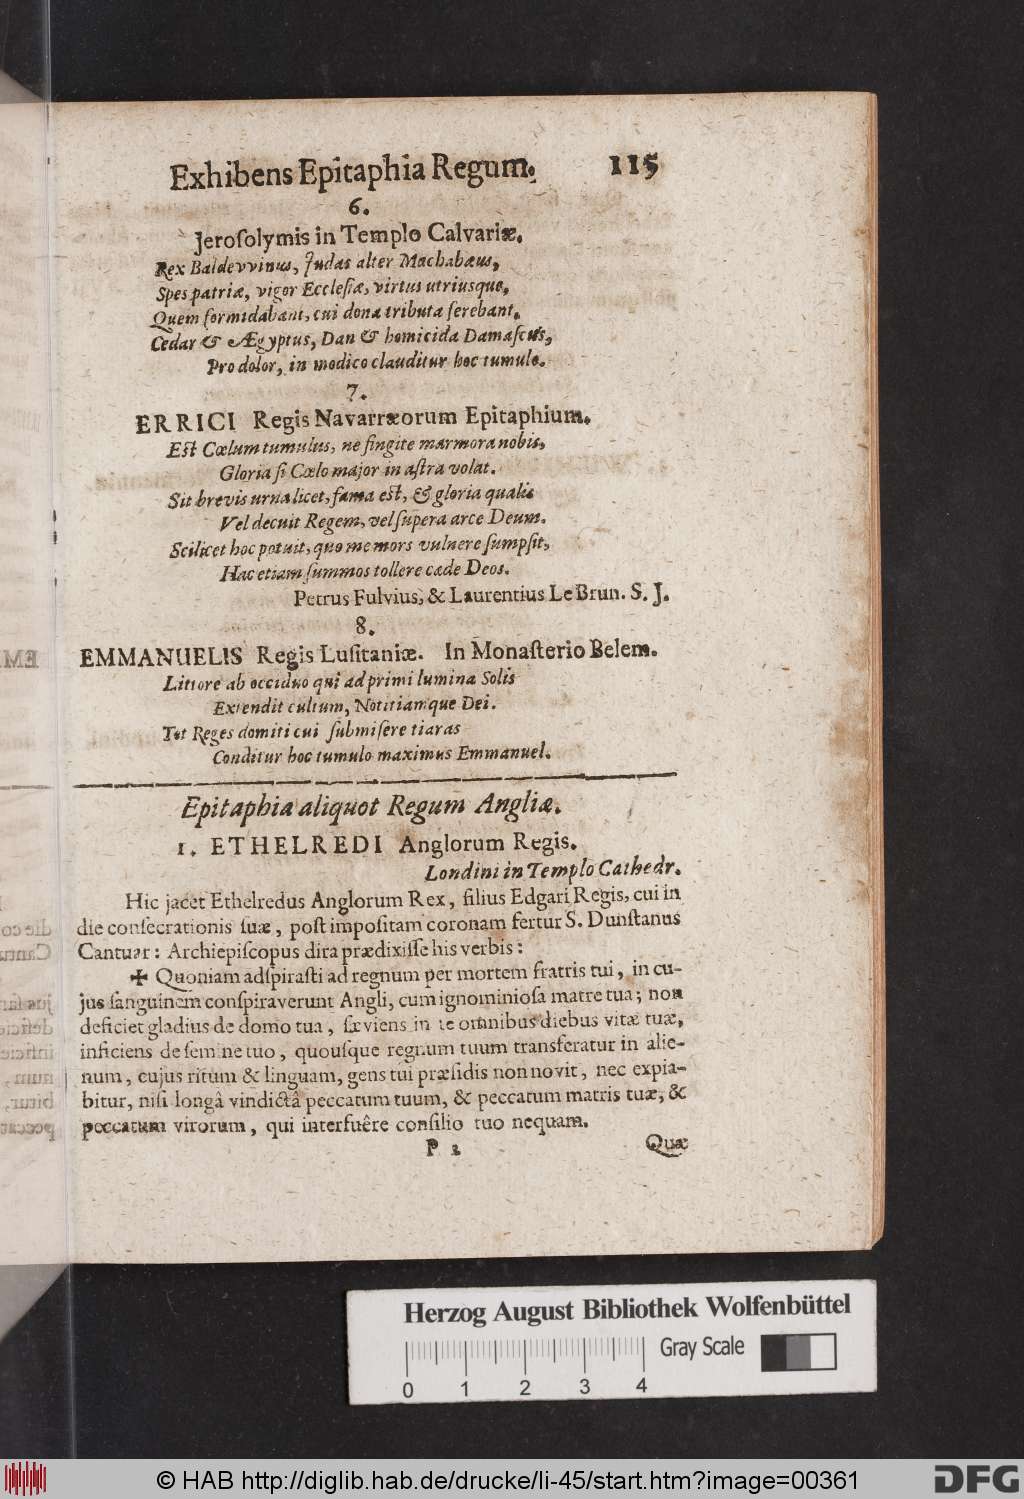 Exhibens Epitaphia Regum. 115
6.
Jeroſolymis in Templo Calvariæ.
Rex Baldevvinus, Judas alter Machabæus,
Spes patriæ, vigor Eccleſiæ, virtus utriusque,
Quem formidabant, cui dona tributa ferebant.
Cedar & Ægyptus, Dan & homicida Damaſcus,
Pro dolor, in modico clauditur hoc tumulo.
7.
ERRICI Regis Navarræorum Epitaphium.
Eſt Cœlum tumulus, ne fingite marmora nobis,
Gloria ſi Cœlo major in aſtra volat.
Sit brevis urna licet, fama eſt, & gloria qualis
Vel decuit Regem, vel ſupera arce Deum.
Scilicet hoc potuit, quo me mors vulnere ſumpſit,
Hac etiam ſummos tollere cæde Deos.
Petrus Fulvius, & Laurentius Le Brun. S. J.
8.
EMMANUELIS Regis Luſitaniæ. In Monaſterio Belem.
Littore ab occiduo qui ad primi lumina Solis
Extendit cultum, Notitiamque Dei.
Tot Reges domiti cui ſubmiſere tiaras
Conditur hoc tumulo maximus Emmanuel.
Epitaphia aliquot Regum Angliæ.
1. ETHELREDI Anglorum Regis.
Londini in Templo Cathedr.
Hic jacet Ethelredus Anglorum Rex, filius Edgari Regis, cui in
die conſecrationis ſuæ, poſt impoſitam coronam fertur S. Dunſtanus
Cantuar: Archiepiſcopus dira prædixiſſe his verbis:
✠ Quoniam adſpiraſti ad regnum per mortem fratris tui, in cu-
jus ſanguinem conſpiraverunt Angli, cum ignominioſa matre tua; non
deficiet gladius de domo tua, ſæviens in te omnibus diebus vitæ tuæ,
inficiens de ſemine tuo, quouſque regnum tuum transferatur in alie-
num, cujus ritum & linguam, gens tui præſidis non novit, nec expia-
bitur, niſi longâ vindictâ peccatum tuum, & peccatum matris tuæ, &
peccatum virorum, qui interfuêre conſilio tuo nequam.
P 2 Quæ
Herzog August Bibliothek Wolfenbüttel
Gray Scale
0 1 2 3 4
© HAB http://diglib.hab.de/drucke/li-45/start.htm?image=00361
DFG